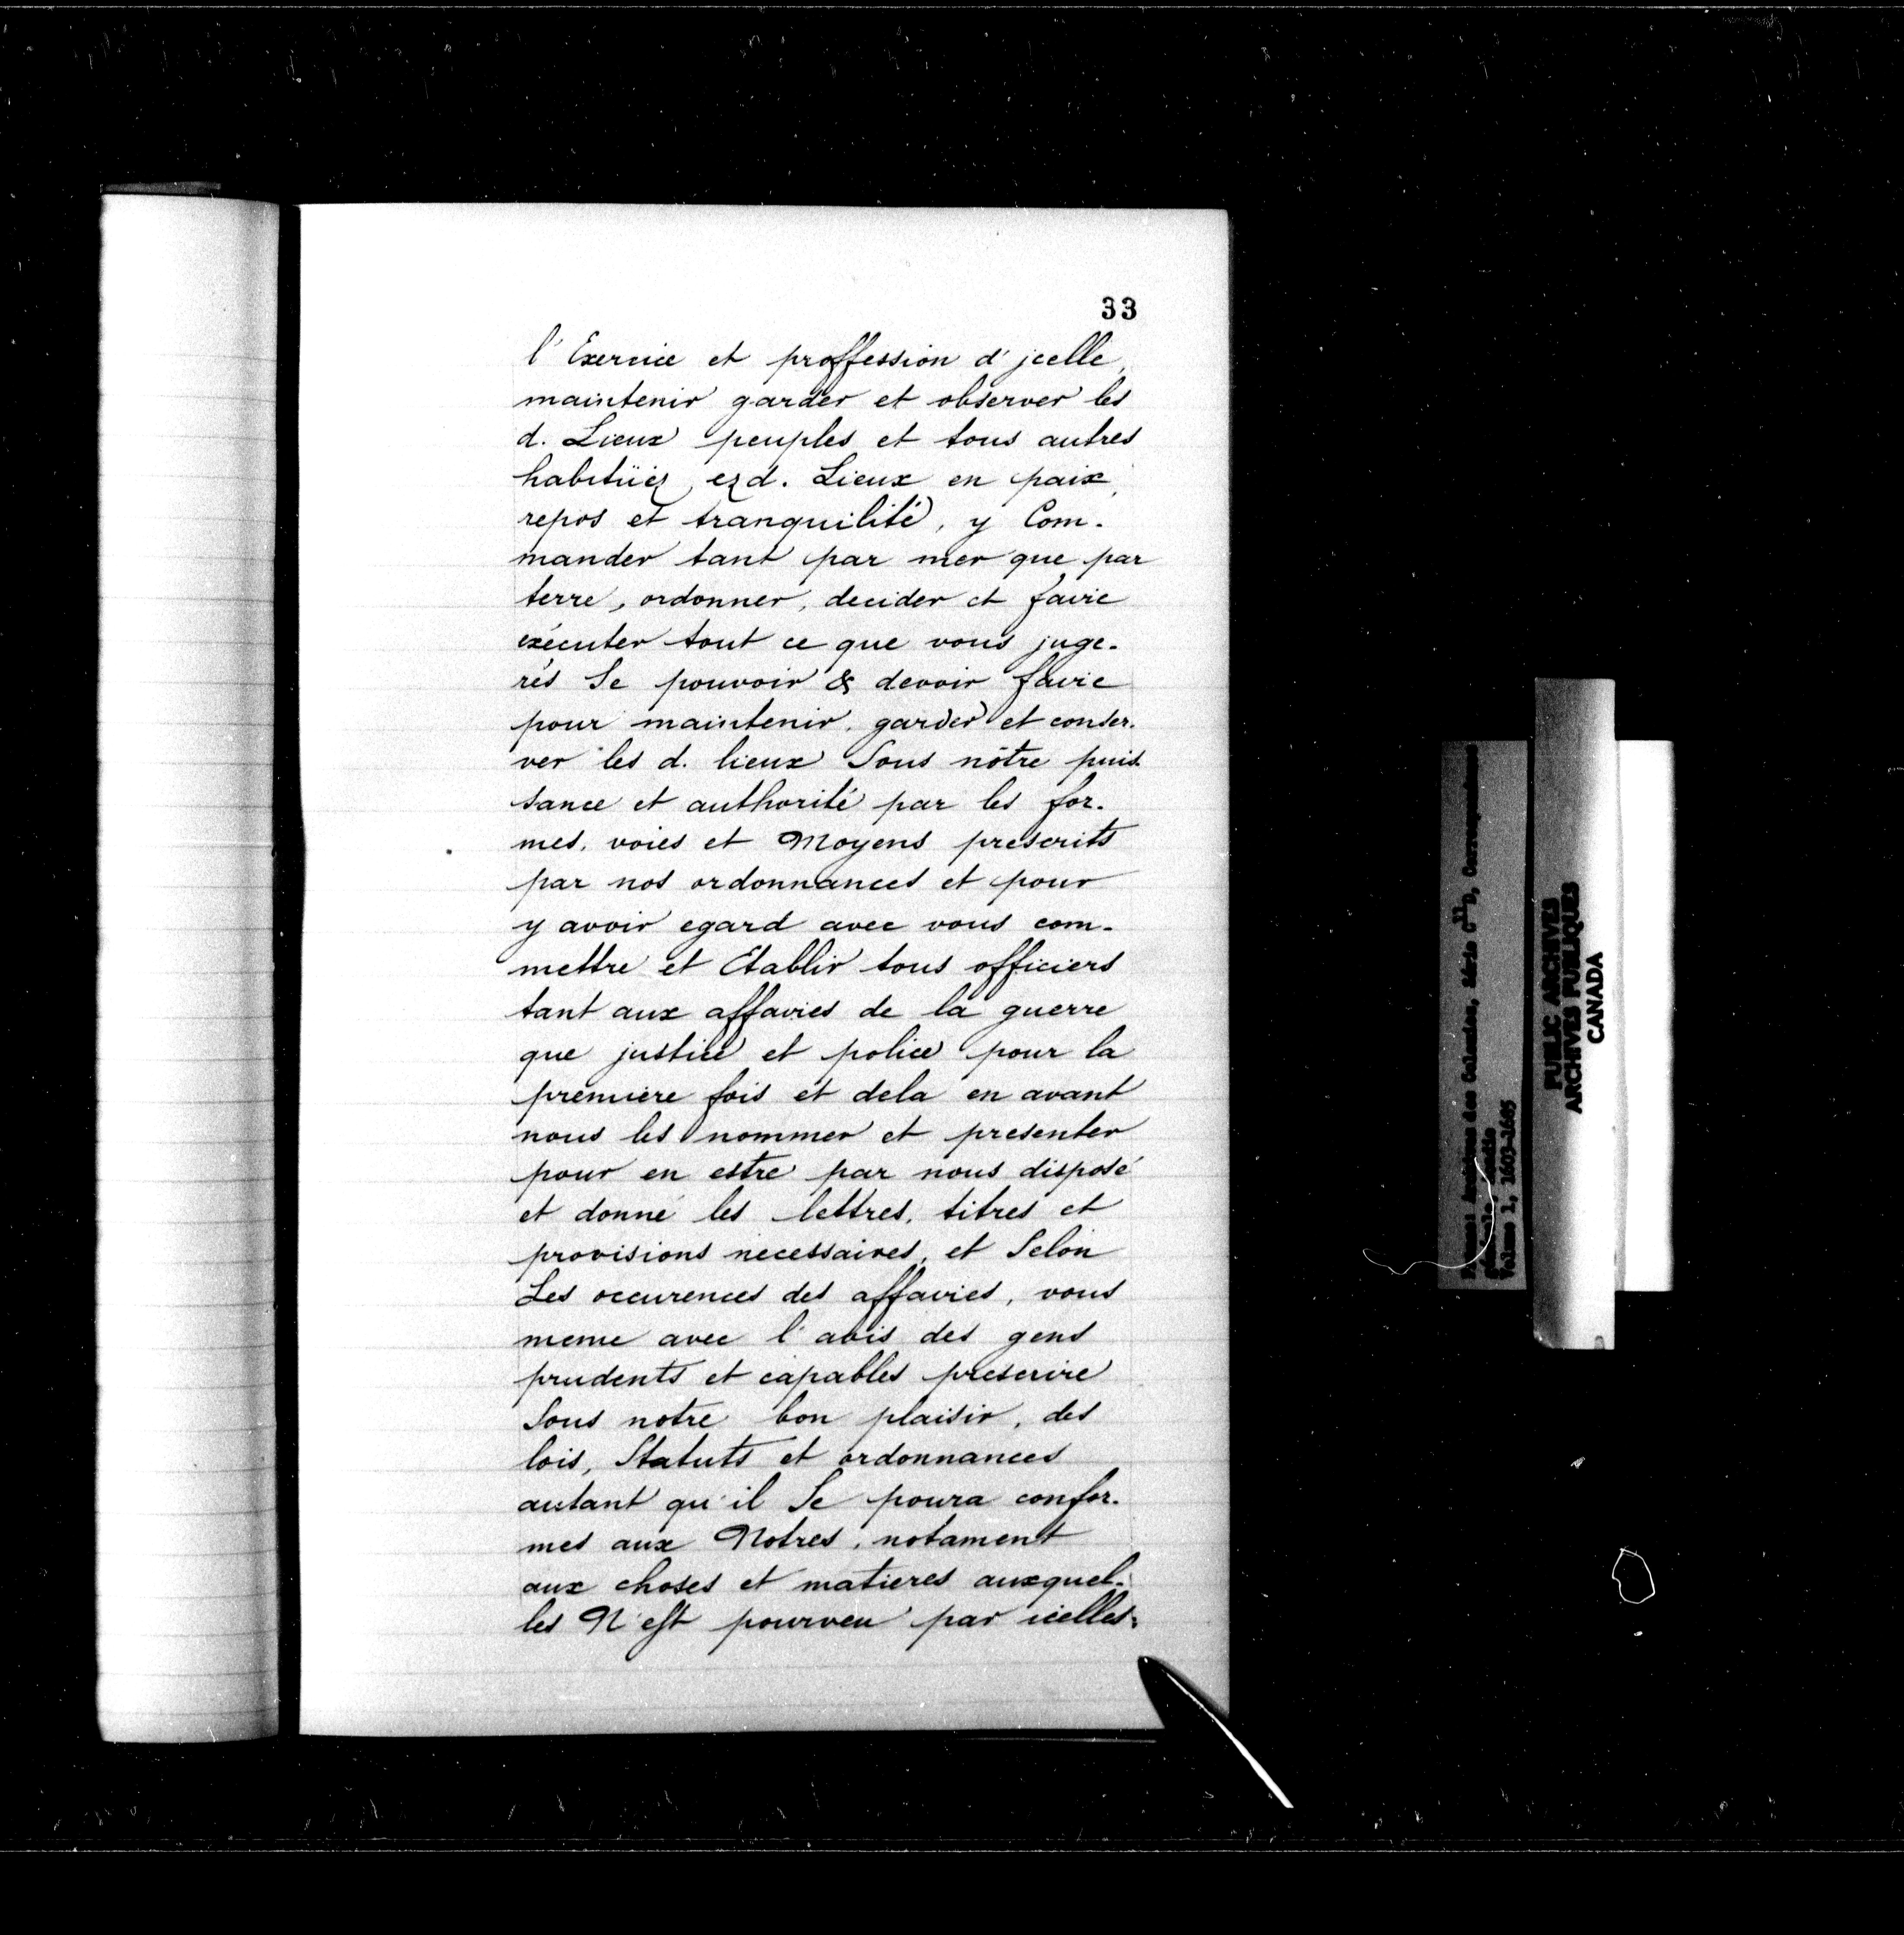 33
l'Exercice et proffession d'jcelle,
maintenir garder et observer les
d. Lieux peuples et tous autres
habitüéz ezd. Lieux en paix,
repos et tranquilité, y Com-
mander tant par mer que par
terre, ordonner, decider et faire
exécuter tout ce que vous juge-
rés Se pouvoir & devoir faire
pour maintenir, garder et conser-
ver les d. lieux Sous nôtre puis-
sance et authorité par les for-
mes, voies et Moyens prescrits
par nos ordonnances et pour
y avoir egard avec vous com-
mettre et Etablir tous officiers
tant aux affaires de la guerre
que justice et police pour la
premiere fois et dela en avant
nous les nommer et presenter
pour en estre par nous disposé
et donné les lettres, titres et
provisions necessaires, et Selon
Les occurences des affaires, vous
meme avec l'avis des gens
prudents et capables prescrire
Sous notre bon plaisir, des
lois, Statuts et ordonnances
autant qu'il Se poura confor-
mes aux Notres, notament
aux choses et matieres auxquel-
les N'est pourveu par icelles:
Archives des Colonies, Série C11D,
Volume 1, 1603-1685
PUBLIC ARCHIVES
ARCHIVES PUBLIQUES
CANADA